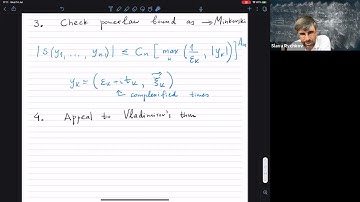 3. Check powerlaw bound as → Minkowski
|S(y₁, ..., yₙ)| ≤ Cₙ [ max ( 1/εₖ, |yₖ| ) ]^Aₙ
yₖ = ( εₖ - i tₖ, ξₖ )
complexified times
4. Appeal to Vladimirov's thm
Slava Rychkov